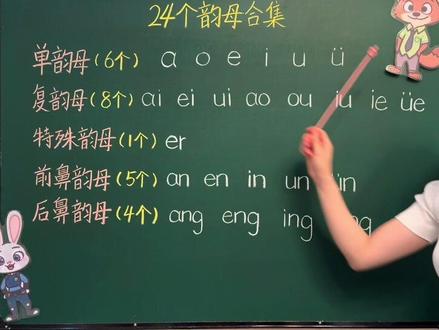 24个韵母合集
单韵母(6个) a o e i u ü
复韵母(8个) ai ei ui ao ou iu ie üe
特殊韵母(1个) er
前鼻韵母(5个) an en in un ün
后鼻韵母(4个) ang eng ing